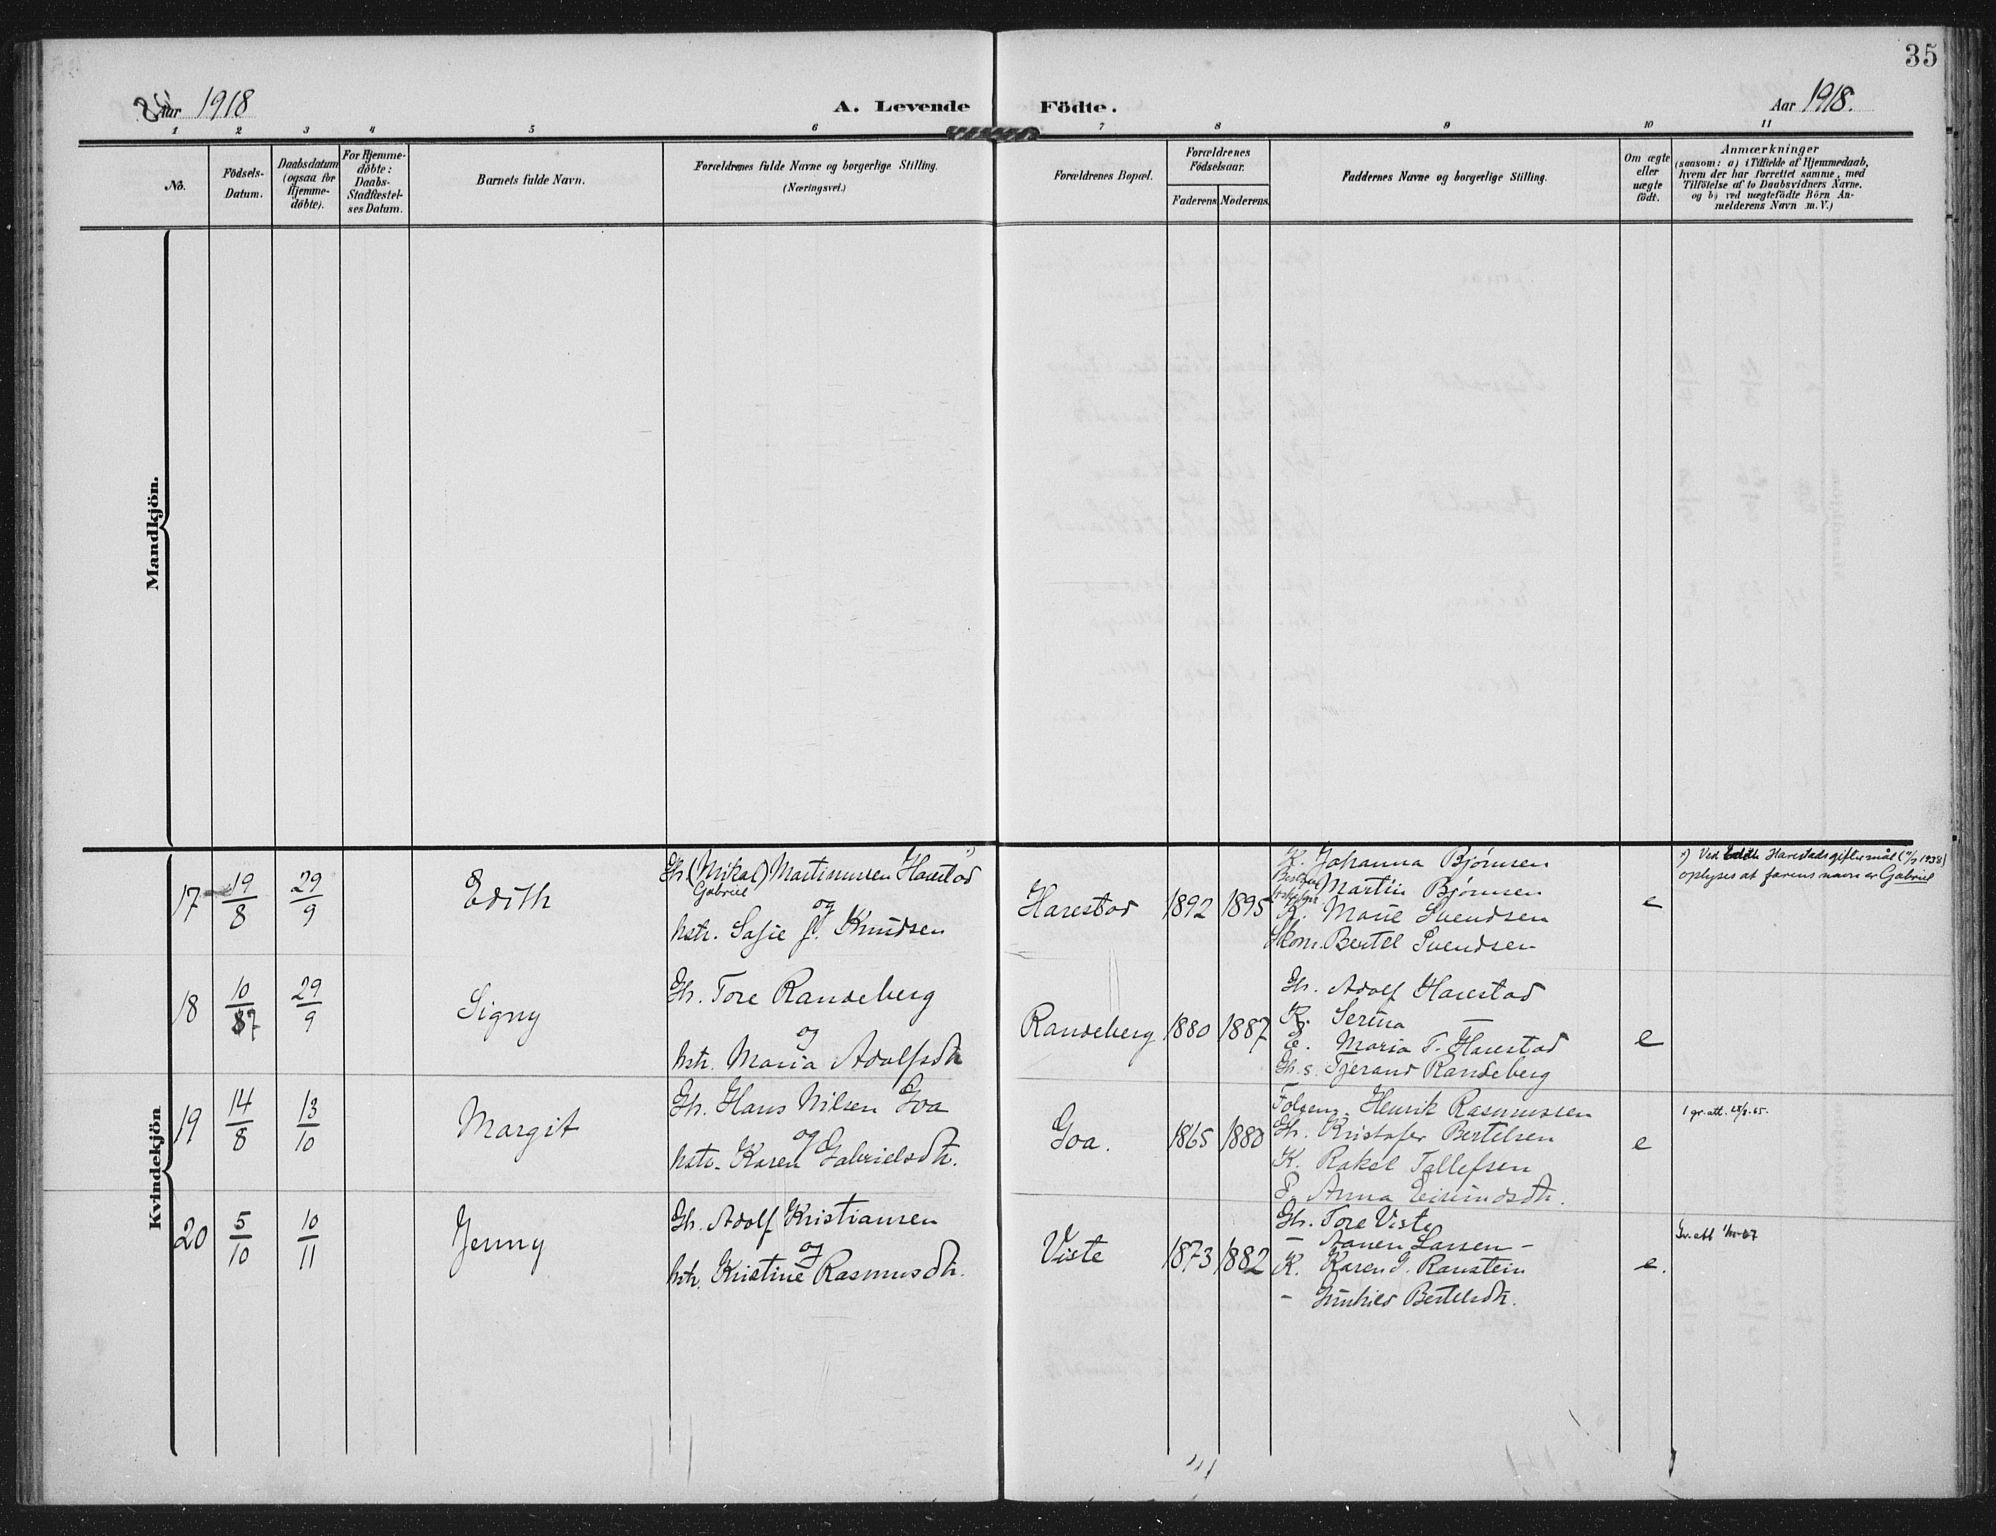 35
Aar 1918
A. Levende Födte.
Aar 1918.
1 2 3 4 5 6 7 8 9 10 11
No.
Födsels-Datum.
Daabsdatum (ogsaa for Hjemme-döbte).
For Hjemme-döbte: Daabs-Stadfæstel-ses Datum.
Barnets fulde Navn.
Forældrenes fulde Navne og borgerlige Stilling.
(Næringsvei.)
Forældrenes Bopæl.
Forældrenes Födselsaar.
Faderens Moderens
Faddernes Navne og borgerlige Stilling.
Om ægte eller uægte födt.
Anmærkninger
(saasom: a) i Tilfælde af Hjemmedaab,
hvem der har forrettet samme, med
Tilföielse af to Daabsvidners Navne,
og b) ved uægtefödte Börn An-
melderens Navn m. V.)
Mandkjön.
Kvindekjön
17 19/8 29/9 Edith
Gh. (Mikal) Martinussen Harestad
Gabriel
og
Hstr. Sofie J. Knudsen
Harestad 1892 1895
K. Johanna Bjørnsen
Martin Bjørnsen
K. Marie Svendsen
Skom. Bertel Svendsen
e
Ved Edith Harestads giftermål
oplyses at farens navn er Gabriel
18 29/9 Signy
Gh. Tore Randeberg
og
Hstr. Maria Adolfsdtr.
Randeberg 1880 1887
Gh. Adolf Harestad
K. Serina —
E. Maria T. Harestad
Gh. s. Tjerand Randeberg
e
19 14/8 13/10 Margit
Gh. Hans Nilsen Goa
og
Hstr. Karen Gabrielsdtr.
Goa. 1865 1880
Henrik Rasmussen
Gh. Kristofer Bertelsen
K. Rakel Tollefsen
P. Anna Eivindsdtr.
e
20 5/10 10/11 Jenny
Gh. Adolf Kristiansen
og
Hstr. Kristine Rasmusdtr.
Viste 1873 1882
Gh. Tore Viste
— Aanen Larsen —
K. Karen J. Ranstein
— Gunhild Bertelsdtr.
e.